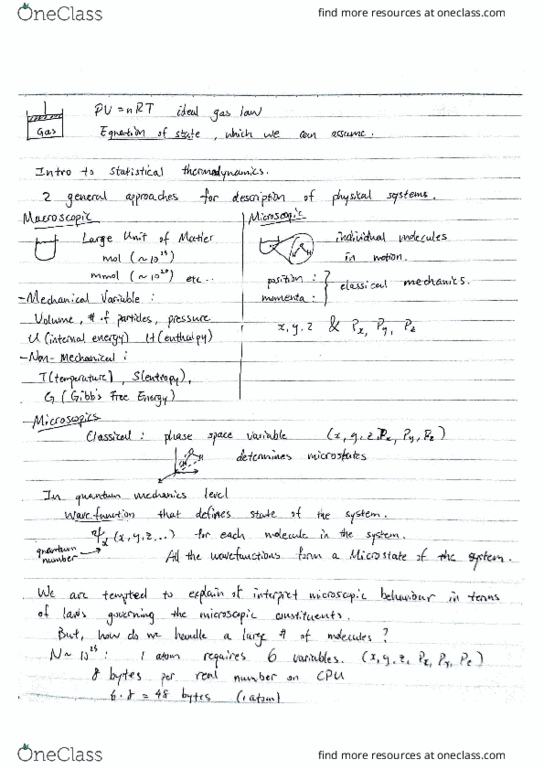 OneClass
find more resources at oneclass.com
PV = nRT ideal gas law
Gas
Equation of state, which we can assume.
Intro to statistical thermodynamics.
2 general approaches for description of physical systems.
Macroscopic
Large Unit of Matter
mol (~10²³)
mmol (~10²⁰) etc..
-Mechanical Variable :
Volume, # of particles, pressure
U (internal energy) H (enthalpy)
-Non-Mechanical :
T(temperature), S(entropy),
G (Gibb's Free Energy)
Microscopic
individual molecules
in motion.
position : ?
momenta : ?
classical mechanics.
x, y, z & Px, Py, Pz
Microscopics
Classical : phase space variable (x, y, z, Px, Py, Pz)
determines microstates
In quantum mechanics level
Wavefunction that defines state of the system.
(x, y, z...) for each molecule in the system.
quantum number
All the wavefunctions form a Microstate of the system.
We are tempted to explain & interpret microscopic behaviour in terms
of laws governing the microscopic constituents.
But, how do we handle a large # of molecules?
N ~ 10²³ : 1 atom requires 6 variables. (x, y, z, Px, Py, Pz)
8 bytes per real number on CPU
6·8 = 48 bytes (1 atom)
OneClass
find more resources at oneclass.com